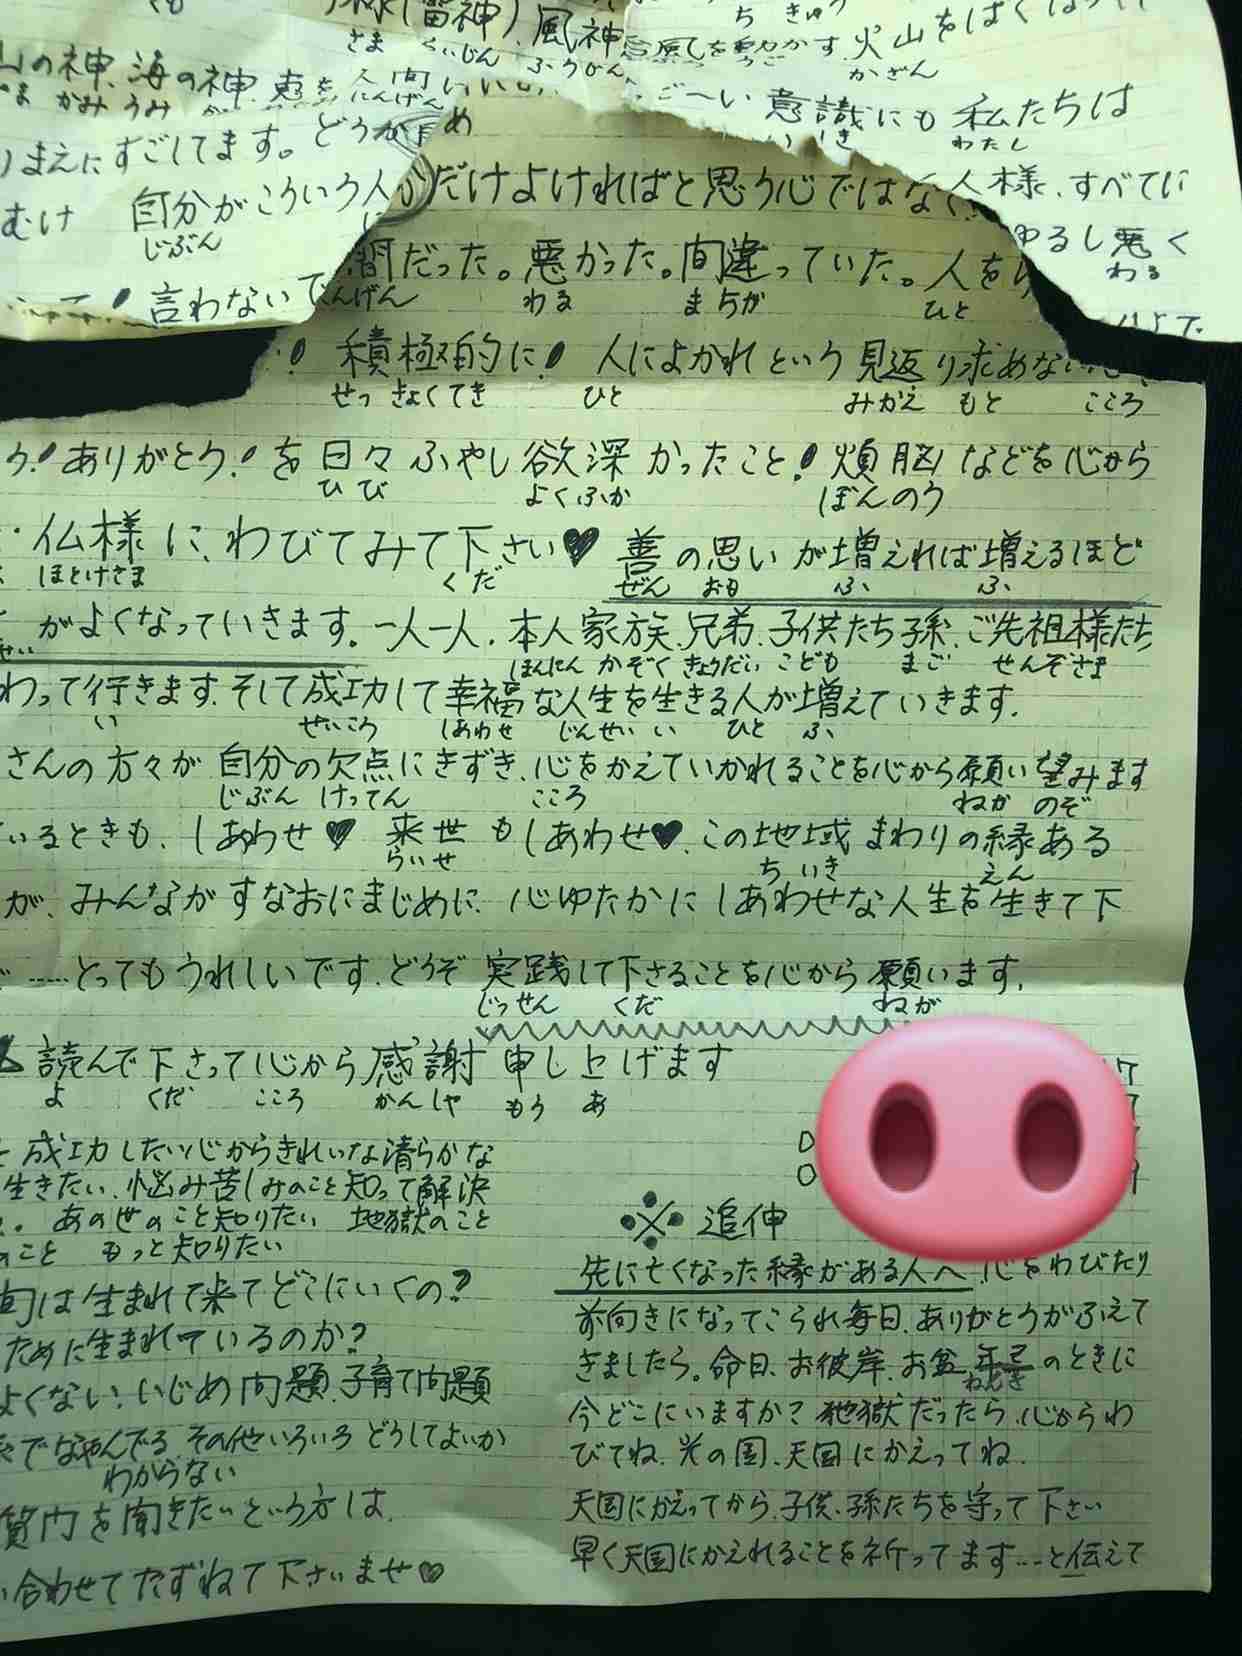 様(雷神)、風神
さま らいじん ふうじん
ち きゅう
風を動かす、火山をばくはつ
かざん
山の神、海の神、恵を人間
かみ うみ にんげん
意識にも 私たちは
いしき わたし
りまえにすごしてます。どうか
め
だけよければと思う心ではなく
人様、すべてに
むけ 自分がこういう人
じぶん
間だった。悪かった。間違っていた。人を
にんげん わる まちが ひと
ゆるし悪く
わる
言わないで
積極的に! 人によかれという見返り求めない
せっきょくてき ひと みかえ もと こころ
う!ありがとう!を日々ふやし欲深かったこと!煩脳などを心から
ひび よくふか ぼんのう
仏様に、わびてみて下さい♥ 善の思いが増えれば増えるほど
ほとけさま くだ ぜん おも ふ ふ
がよくなっていきます。一人一人、本人家族、兄弟、子供たち孫、ご先祖様たち
ほんにん かぞく きょうだい こども まご せんぞさま
わって行きます、そして成功して幸福な人生を生きる人が増えていきます。
い せいこう しあわせ じんせい い ひと ふ
さんの方々が自分の欠点にきずき、心をかえていかれることを心から願い望みます
じぶん けってん こころ ねが のぞ
いるときも、しあわせ♥ 来世もしあわせ♥、この地域まわりの縁ある
らいせ ちいき えん
が、みんながすなおにまじめに、心ゆたかにしあわせな人生を生きて下
……とってもうれしいです、どうぞ実践して下さることを心から願います。
じっせん くだ ねが
読んで下さって心から感謝申し上げます
よ くだ こころ かんしゃ もう あ
成功したい心からきれいな清らかな
生きたい、悩み苦しみのこと知って解決
。あの世のこと知りたい 地獄のこと
のこと もっと知りたい
間は生まれて来てどこにいくの?
ために生まれているのか?
よくない、いじめ問題、子育て問題
でなやんでる、その他いろいろどうしてよいか
わからない
質問を聞きたいという方は、
い合わせてたずねて下さいませ♡
※ 追伸
先に亡くなった縁がある人へ 心をわびたり
前向きになってこられ毎日、ありがとうがふえて
きましたら。命日、お彼岸、お盆、年忌のときに
ねんき
今どこにいますか? 地獄だったら、心からわ
びてね、光の国、天国にかえってね、
天国にかえってから、子供、孫たちを守って下さい
早く天国にかえれることを祈ってます…と伝えて